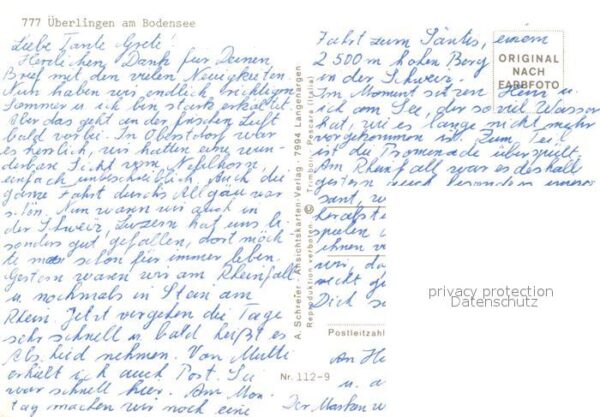 777 Überlingen am Bodensee
Liebe Tante Grete!
Herlichen Dank für Deinen
Brief mit den vielen Neuigkeiten.
Nun haben wir endlich richtigen
Sommer u. ich bin stark erkältet.
Aber das geht an der frischen Luft
bald vorbei. In Oberstdorf war
es herrlich, wir hatten eine wun-
derbare Sicht vom Nebelhorn,
einfach unbeschreiblich. Auch die
ganze Fahrt durchs Allgäu war
schön. Nun waren wir auch in
der Schweiz, Luzern hat uns be-
sonders gut gefallen, dort möch-
te man schon für immer leben.
Gestern waren wir am Rheinfall
u. nochmals in Stein am
Rhein. Jetzt vergehen die Tage
sehr schnell u. bald heißt es
Abschied nehmen. Von Mutti
erhielt ich auch Post. Sie
war schnell hier. Am Mon-
tag machen wir noch eine
A. Schreier - Ansichtskarten-Verlag - 7994 Langenargen
Reproduktion verboten © Trimboli - Pescara (Italia)
Nr. 112-9
Fahrt zum Säntis, einem
2500 m hohen Berg
in der Schweiz.
Im Moment sitzen Heinz u.
ich am See, der so viel Wasser
hat, wie es lange nicht mehr
vorgekommen ist. Zum Teil
ist die Promenade überspült.
Am Rheinfall war es deshalb
gestern auch besonders inter-
sant, w
herabstü
spielen
ehnen v
wir, da
nicht ge
Dich s
ORIGINAL
NACH
FARBFOTO
privacy protection
Datenschutz
Postleitzahl
An He
u. a
Der Maskan w